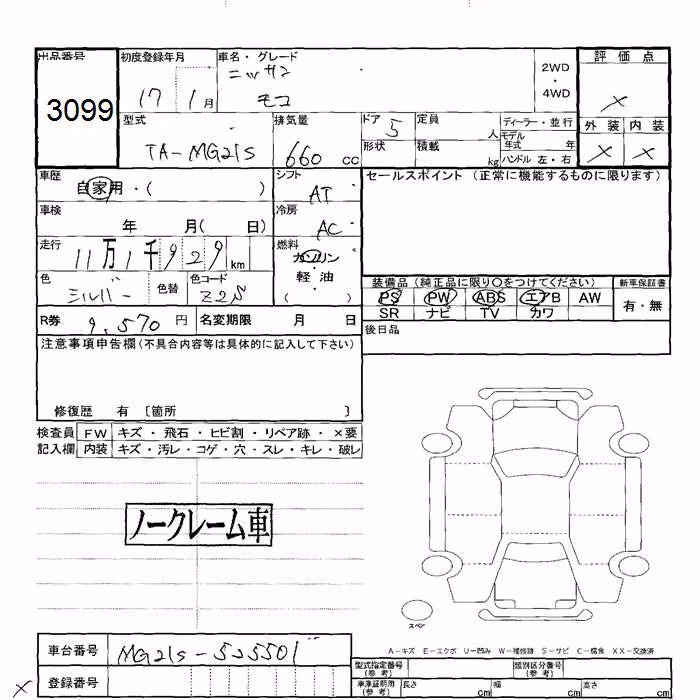 出品番号 初度登録年月 車名・グレード 評価点
3099 17 1月 ニッサン モコ 2WD・4WD ×
型式 排気量 ドア 定員 ディーラー・並行 外装 内装
TA-MG21S 660cc 5 人 モデル年式 年 × ×
形状 積載 kg ハンドル 左・右
車歴 シフト セールスポイント(正常に機能するものに限ります)
自家用・( ) AT
車検 冷房
年 月( 日) AC
走行 燃料
11万1千929km ガソリン
色 色替 色コード 軽・油
シルバー Z2S ( )
装備品(純正品に限り○をつけてください) 新車保証書
PS PW ABS エアB AW 有・無
SR ナビ TV カワ
R券 9,570円 名変期限 月 日
後日品
注意事項申告欄(不具合内容等は具体的に記入して下さい)
修復歴 有 〔箇所 〕
検査員 FW キズ・飛石・ヒビ割・リペア跡・×要
記入欄 内装 キズ・汚レ・コゲ・穴・スレ・キレ・破レ
ノークレーム車
スペア
A-キズ E-エクボ U-凹み W-補修跡 S-サビ C-腐食 XX-交換済
車台番号 MG21S-525501
型式指定番号(参考) 類別区分番号(参考)
× 登録番号
車庫証明用(参考) 長さ cm 幅 cm 高さ cm